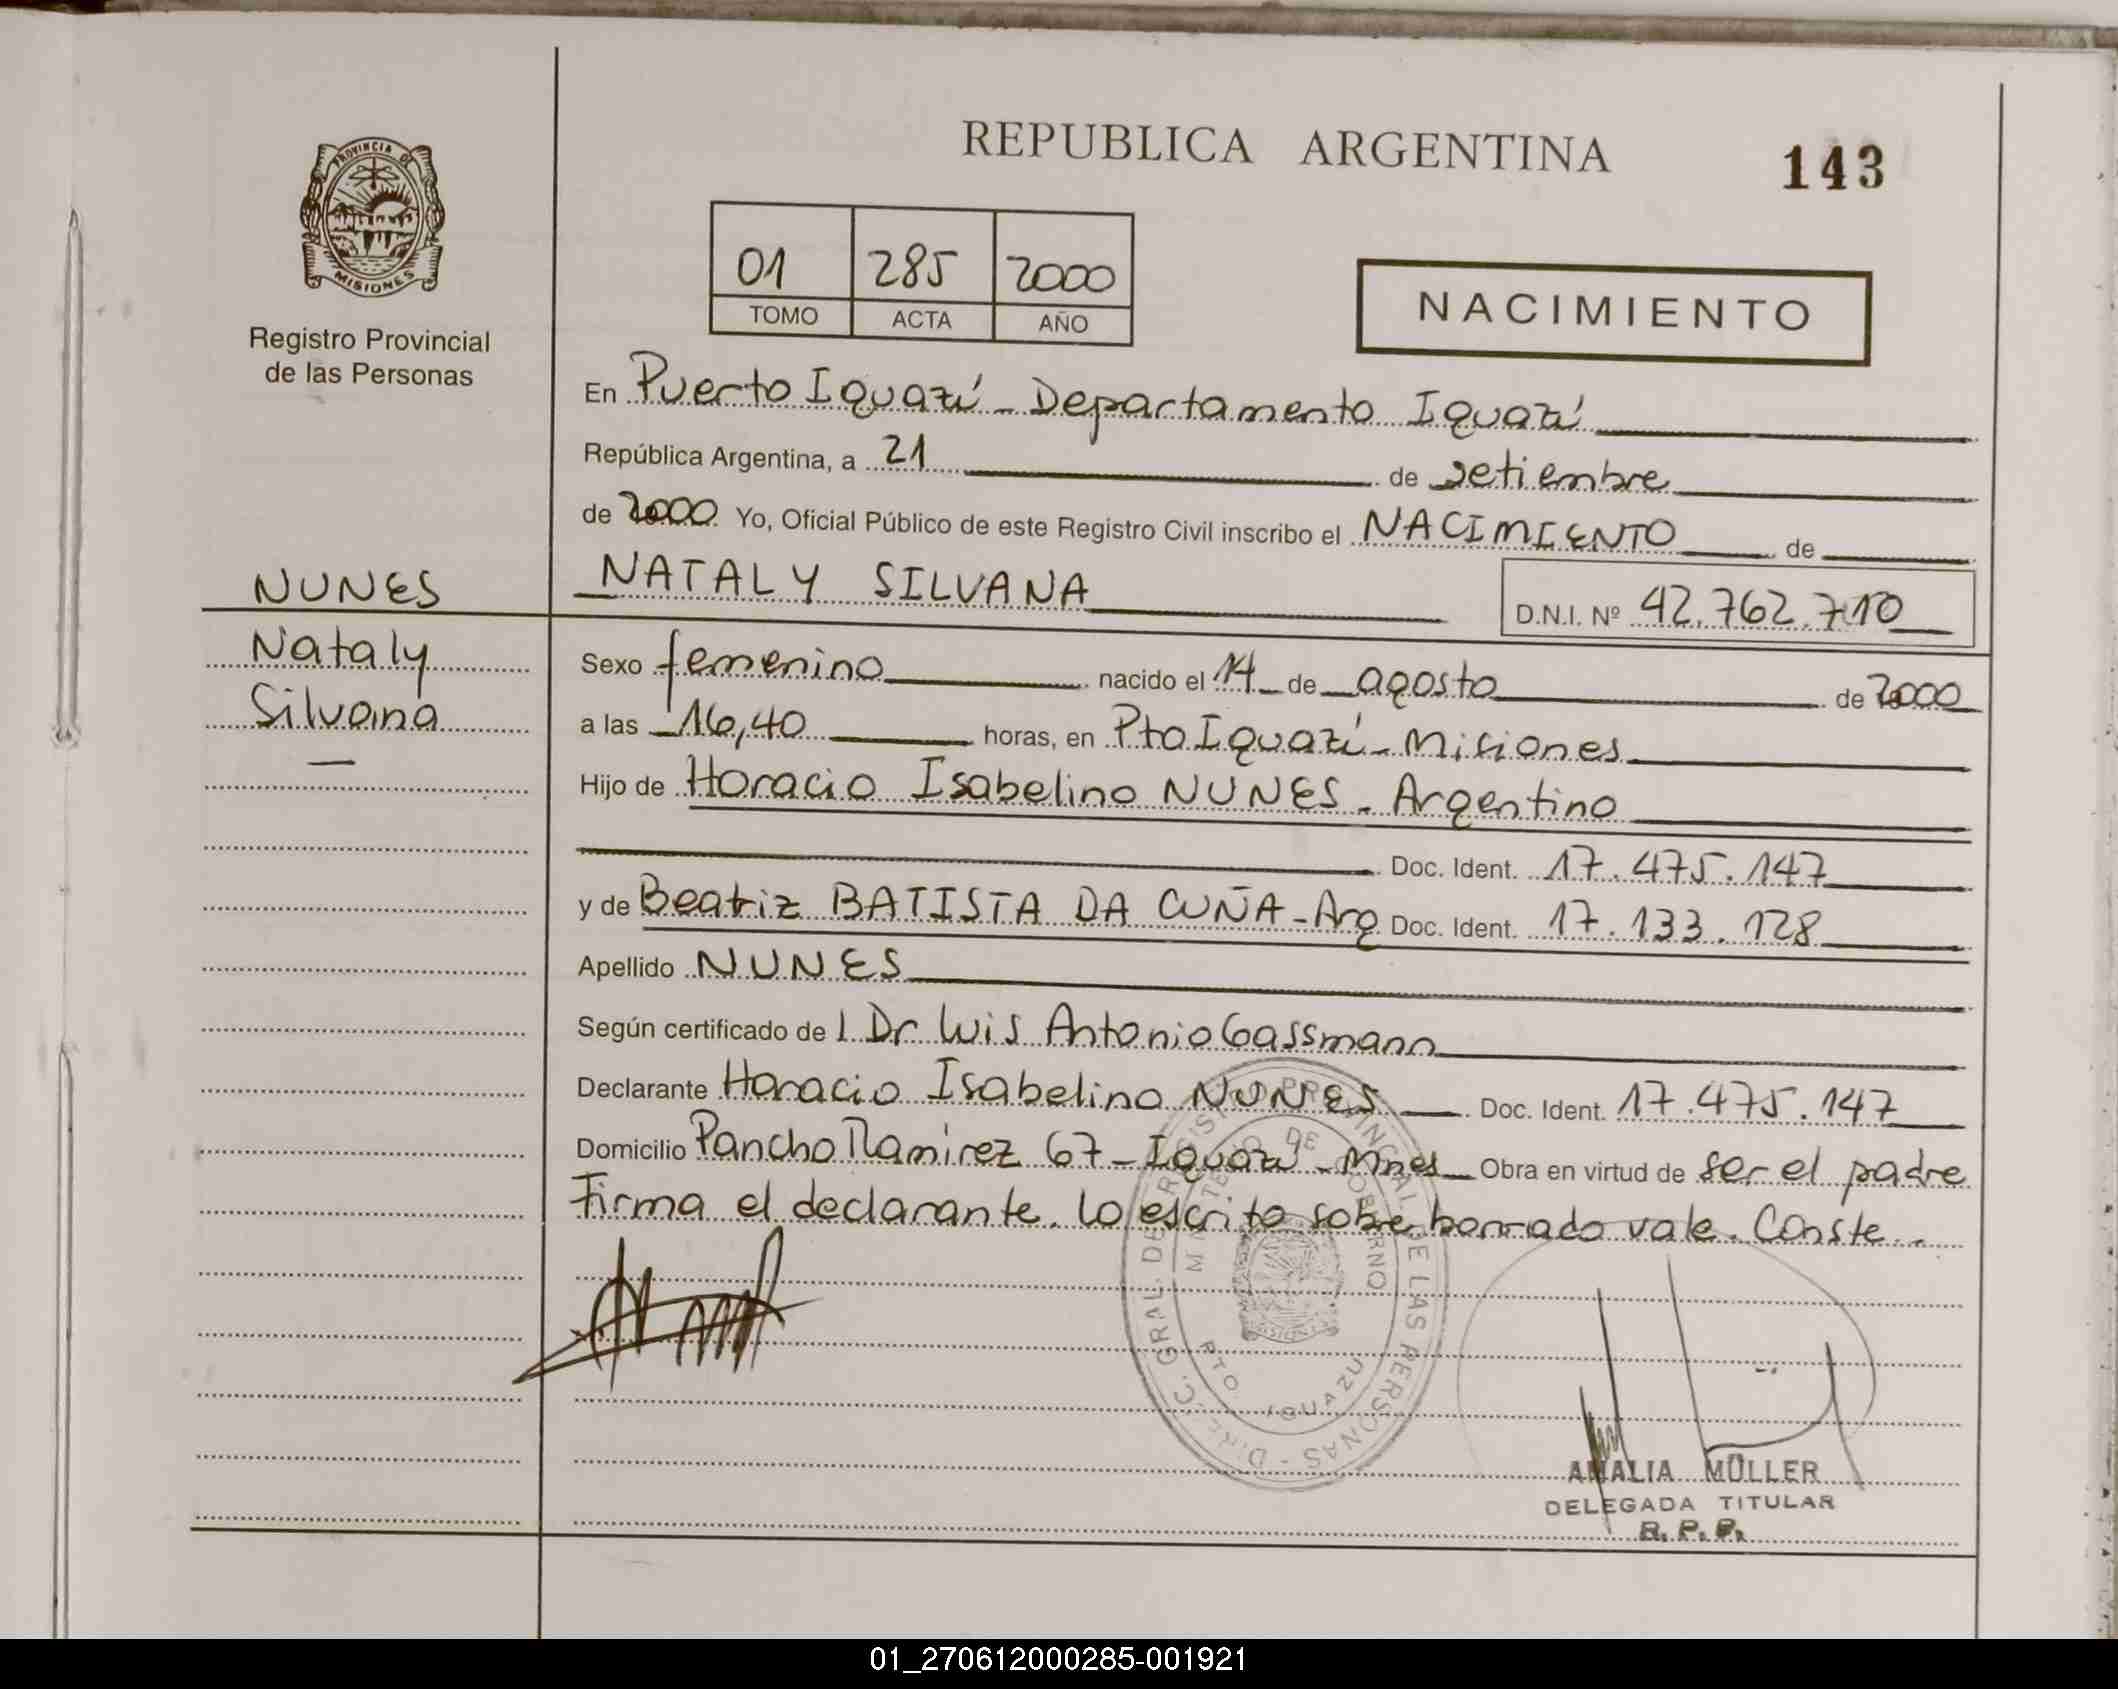 REPUBLICA ARGENTINA
143
PROVINCIA DE
MISIONES
Registro Provincial
de las Personas
01 285 2000
TOMO ACTA AÑO
NACIMIENTO
En Puerto Iguazú - Departamento Iguazú
República Argentina, a 21 de setiembre
de 2000 Yo, Oficial Público de este Registro Civil inscribo el NACIMIENTO de
NUNES
Nataly
Silvana
NATALY SILVANA D.N.I. Nº 42.762.710
Sexo femenino nacido el 14 de agosto de 2000
a las 16,40 horas, en Pto Iguazú - Misiones
Hijo de Horacio Isabelino NUNES - Argentino
Doc. Ident. 17.475.147
y de Beatriz BATISTA DA CUÑA - Arg Doc. Ident. 17.133.128
Apellido NUNES
Según certificado de l Dr Luis Antonio Gassmann
Declarante Horacio Isabelino NUNES Doc. Ident. 17.475.147
Domicilio Pancho Ramirez 67 - Iguazú - Mnes Obra en virtud de ser el padre
Firma el declarante. Lo escrito sobre borrado vale. Conste.
DIREC. GRAL. DE REGISTRO PROVINCIAL DE LAS PERSONAS
MINISTERIO DE GOBIERNO
PTO IGUAZU
MISIONES
AMALIA MÜLLER
DELEGADA TITULAR
R. P. P.
01_270612000285-001921